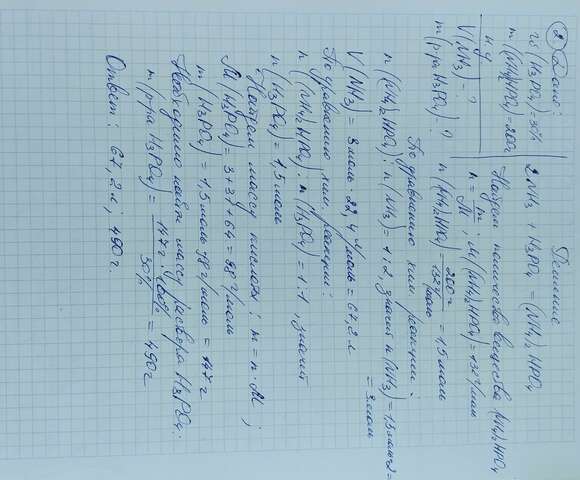 ② Дано:
w(H3PO4)=30%
m((NH4)2HPO4)=200г
н.у
V(NH3)-?
m(р-ра H3PO4)-?
Решение
2NH3 + H3PO4 = (NH4)2HPO4
Найдем количество вещества (NH4)2HPO4
n = m/M ; M((NH4)2HPO4)=132г/моль
n((NH4)2HPO4) = 200г/132г/моль = 1,5моль
По уравнению хим. реакции:
n((NH4)2HPO4) : n(NH3) = 1:2, значит n(NH3) = 1,5моль·2=
= 3моль
V(NH3) = 3моль · 22,4л/моль = 67,2л
По уравнению хим. реакции:
n((NH4)2HPO4) : n(H3PO4) = 1:1, значит
n(H3PO4) = 1,5моль
Найдем массу кислоты: m = n·M ;
M(H3PO4) = 3+31+64 = 98г/моль
m(H3PO4) = 1,5моль·98г/моль = 147г
Необходимо найти массу раствора H3PO4:
m(р-ра H3PO4) = 147г·100%/30% = 490г
Ответ: 67,2л; 490г.